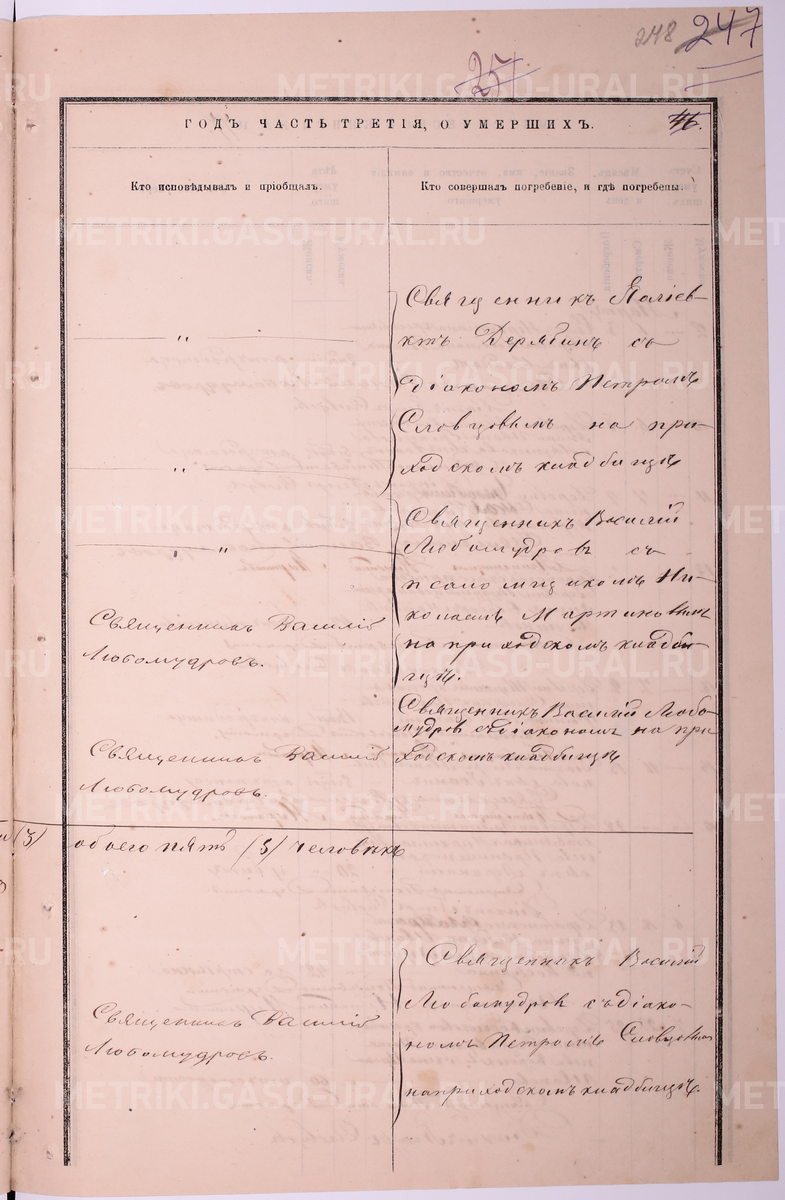 248 247
25
ГОДЪ ЧАСТЬ ТРЕТІЯ, О УМЕРШИХЪ.
46.
Кто исповѣдывалъ и пріобщалъ.
Кто совершалъ погребеніе, и гдѣ погребены.
Священникъ Поліев-
ктъ Дерябинъ съ
діакономъ Петромъ
Словцовымъ на при-
ходскомъ кладбищѣ
Священникъ Василій
Любомудровъ съ
псаломщикомъ Ни-
колаемъ Мартиновымъ
на приходскомъ кладби-
щѣ.
Священникъ Василій
Любомудровъ.
Священникъ Василій Любо
мудров съ діакономъ на при
ходскомъ кладбищѣ
Священникъ Василій
Любомудровъ.
(3/ обоего пять /5/ человѣкъ
Священникъ Василій
Любомудров съ діако-
номъ Петромъ Словцовым
на приходскомъ кладбищѣ.
Священникъ Василій
Любомудровъ.
METRIKI.GASO-URAL.RU